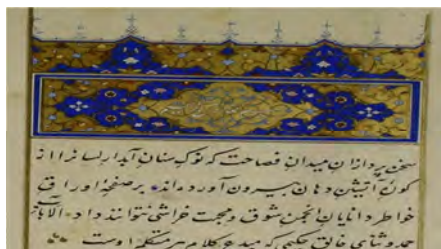 سخن پردازان میدان فصاحت که نوک سنان آبدار لسانرا از
کوره آتشین دهان بیرون آورده‌اند بر صفحهٔ اوراق
خاطر دانایان انجمن شوق و محبت خراشی نتوانند داد الا بآنکه
حمد و ثنای خالق حکیمی که مبدع کلام هر متکلم اوست